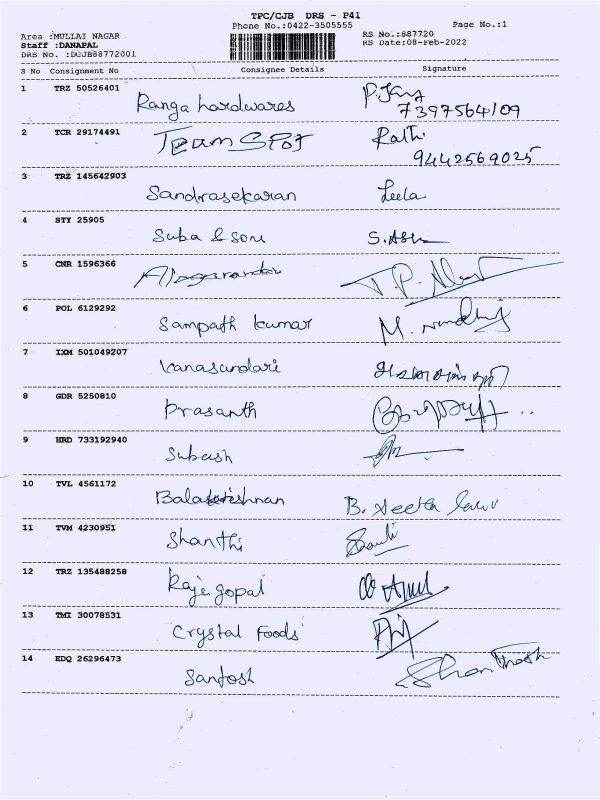 TPC/CJB DRS - P41
Phone No.:0422-3505555 Page No.:1
Area :MULLAI NAGAR RS No.:887720
Staff :DANAPAL RS Date:08-Feb-2022
DRS No. :DCJB88772001
S No Consignment No Consignee Details Signature
1 TRZ 50526401 Ranga hardwares
7397564109
2 TCR 29174491 Team Spot Rathi
9442569025
3 TRZ 145642903
Sandrasekaran Leela
4 STY 25905
Suba & sons
5 CNR 1596366
6 POL 6129292
Sampath kumar
7 IXM 501049207
Vanasundari
8 GDR 5250810
Prasanth
9 HRD 733192940
Subash
10 TVL 4561172
Balakrishnan B.
11 TVM 4230951
Shanthi
12 TRZ 135488258
Rajegopal
13 TMI 30078531
Crystal Foods
14 EDQ 26296473
Santosh